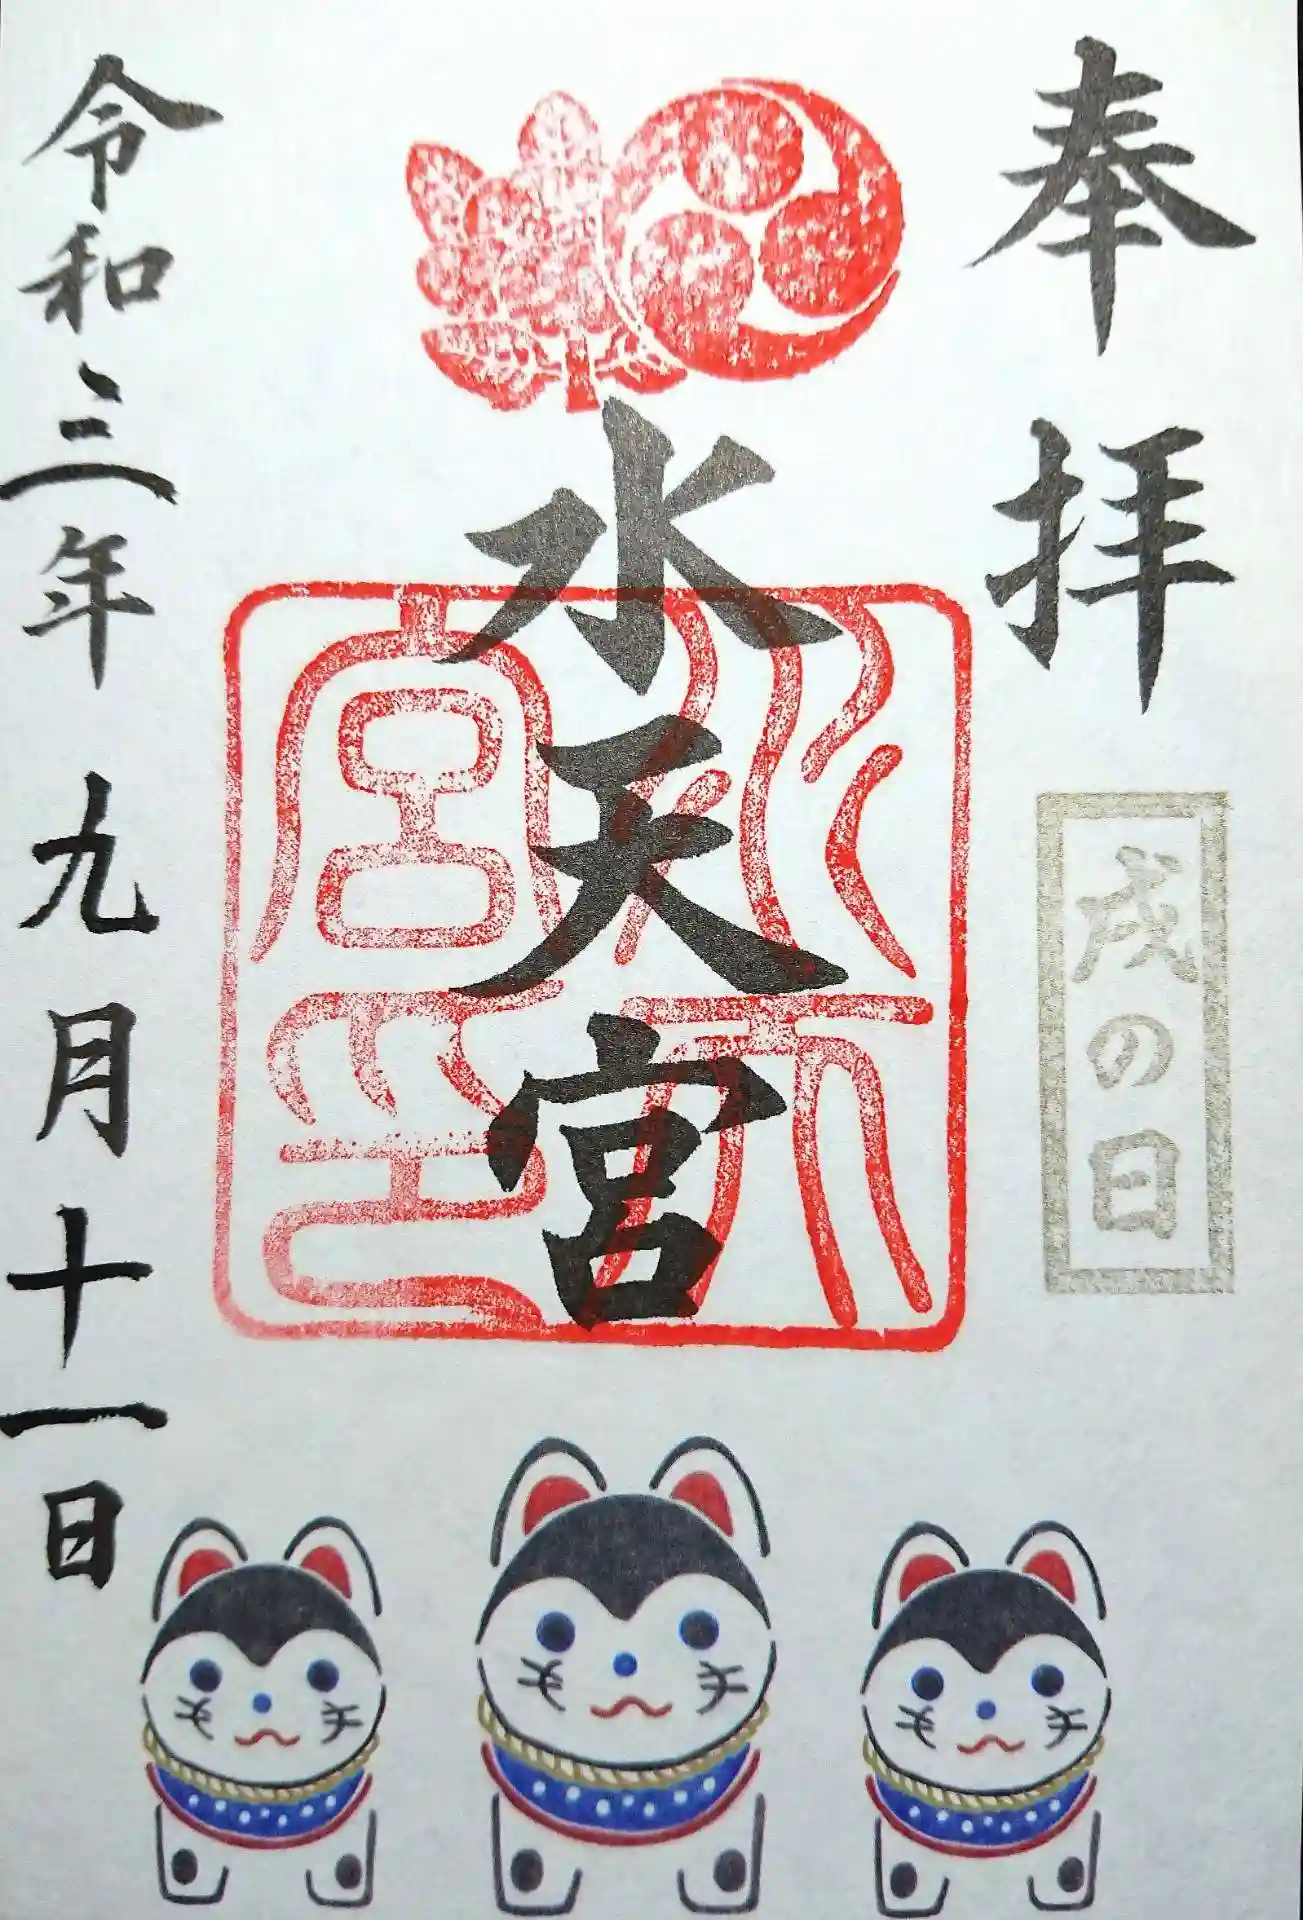 奉拝
戌の日
水天宮
水天宮印
令和三年 九月十一日